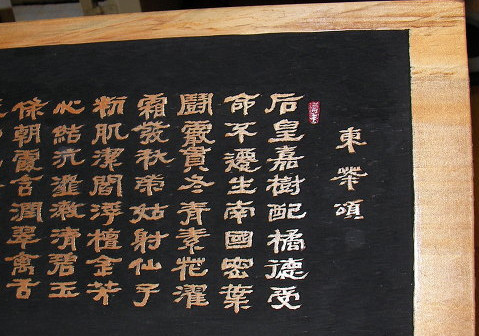 東茶頌
后皇嘉樹配橘德受
命不遷生南國密葉
鬪霰貫冬青素花濯
霜發秋榮姑射仙子
粉肌潔閻浮檀金芳
心結沆瀣漱清碧玉
條朝霞含潤翠禽舌